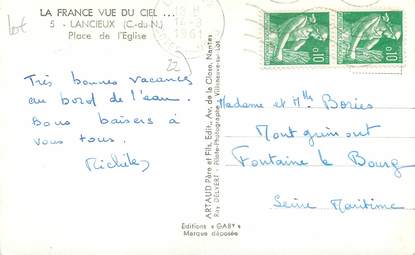 LA FRANCE VUE DU CIEL ...
5 - LANCIEUX (C.-du N.)
Place de l'Eglise
lot
22
1961
0,10
0,10
Très bonnes vacances
au bord de l'eau.
Bons baisers à
vous tous.
Michèle
ARTAUD Père et Fils, Edit., Av. de la Close, Nantes
Ray DELVERT - Pilote-Photographe - Villeneuve-sur-Lot
Madame et Mlle Bories
Montguinont
Fontaine le Bourg
Seine Maritime
Editions « GABY »
Marque déposée